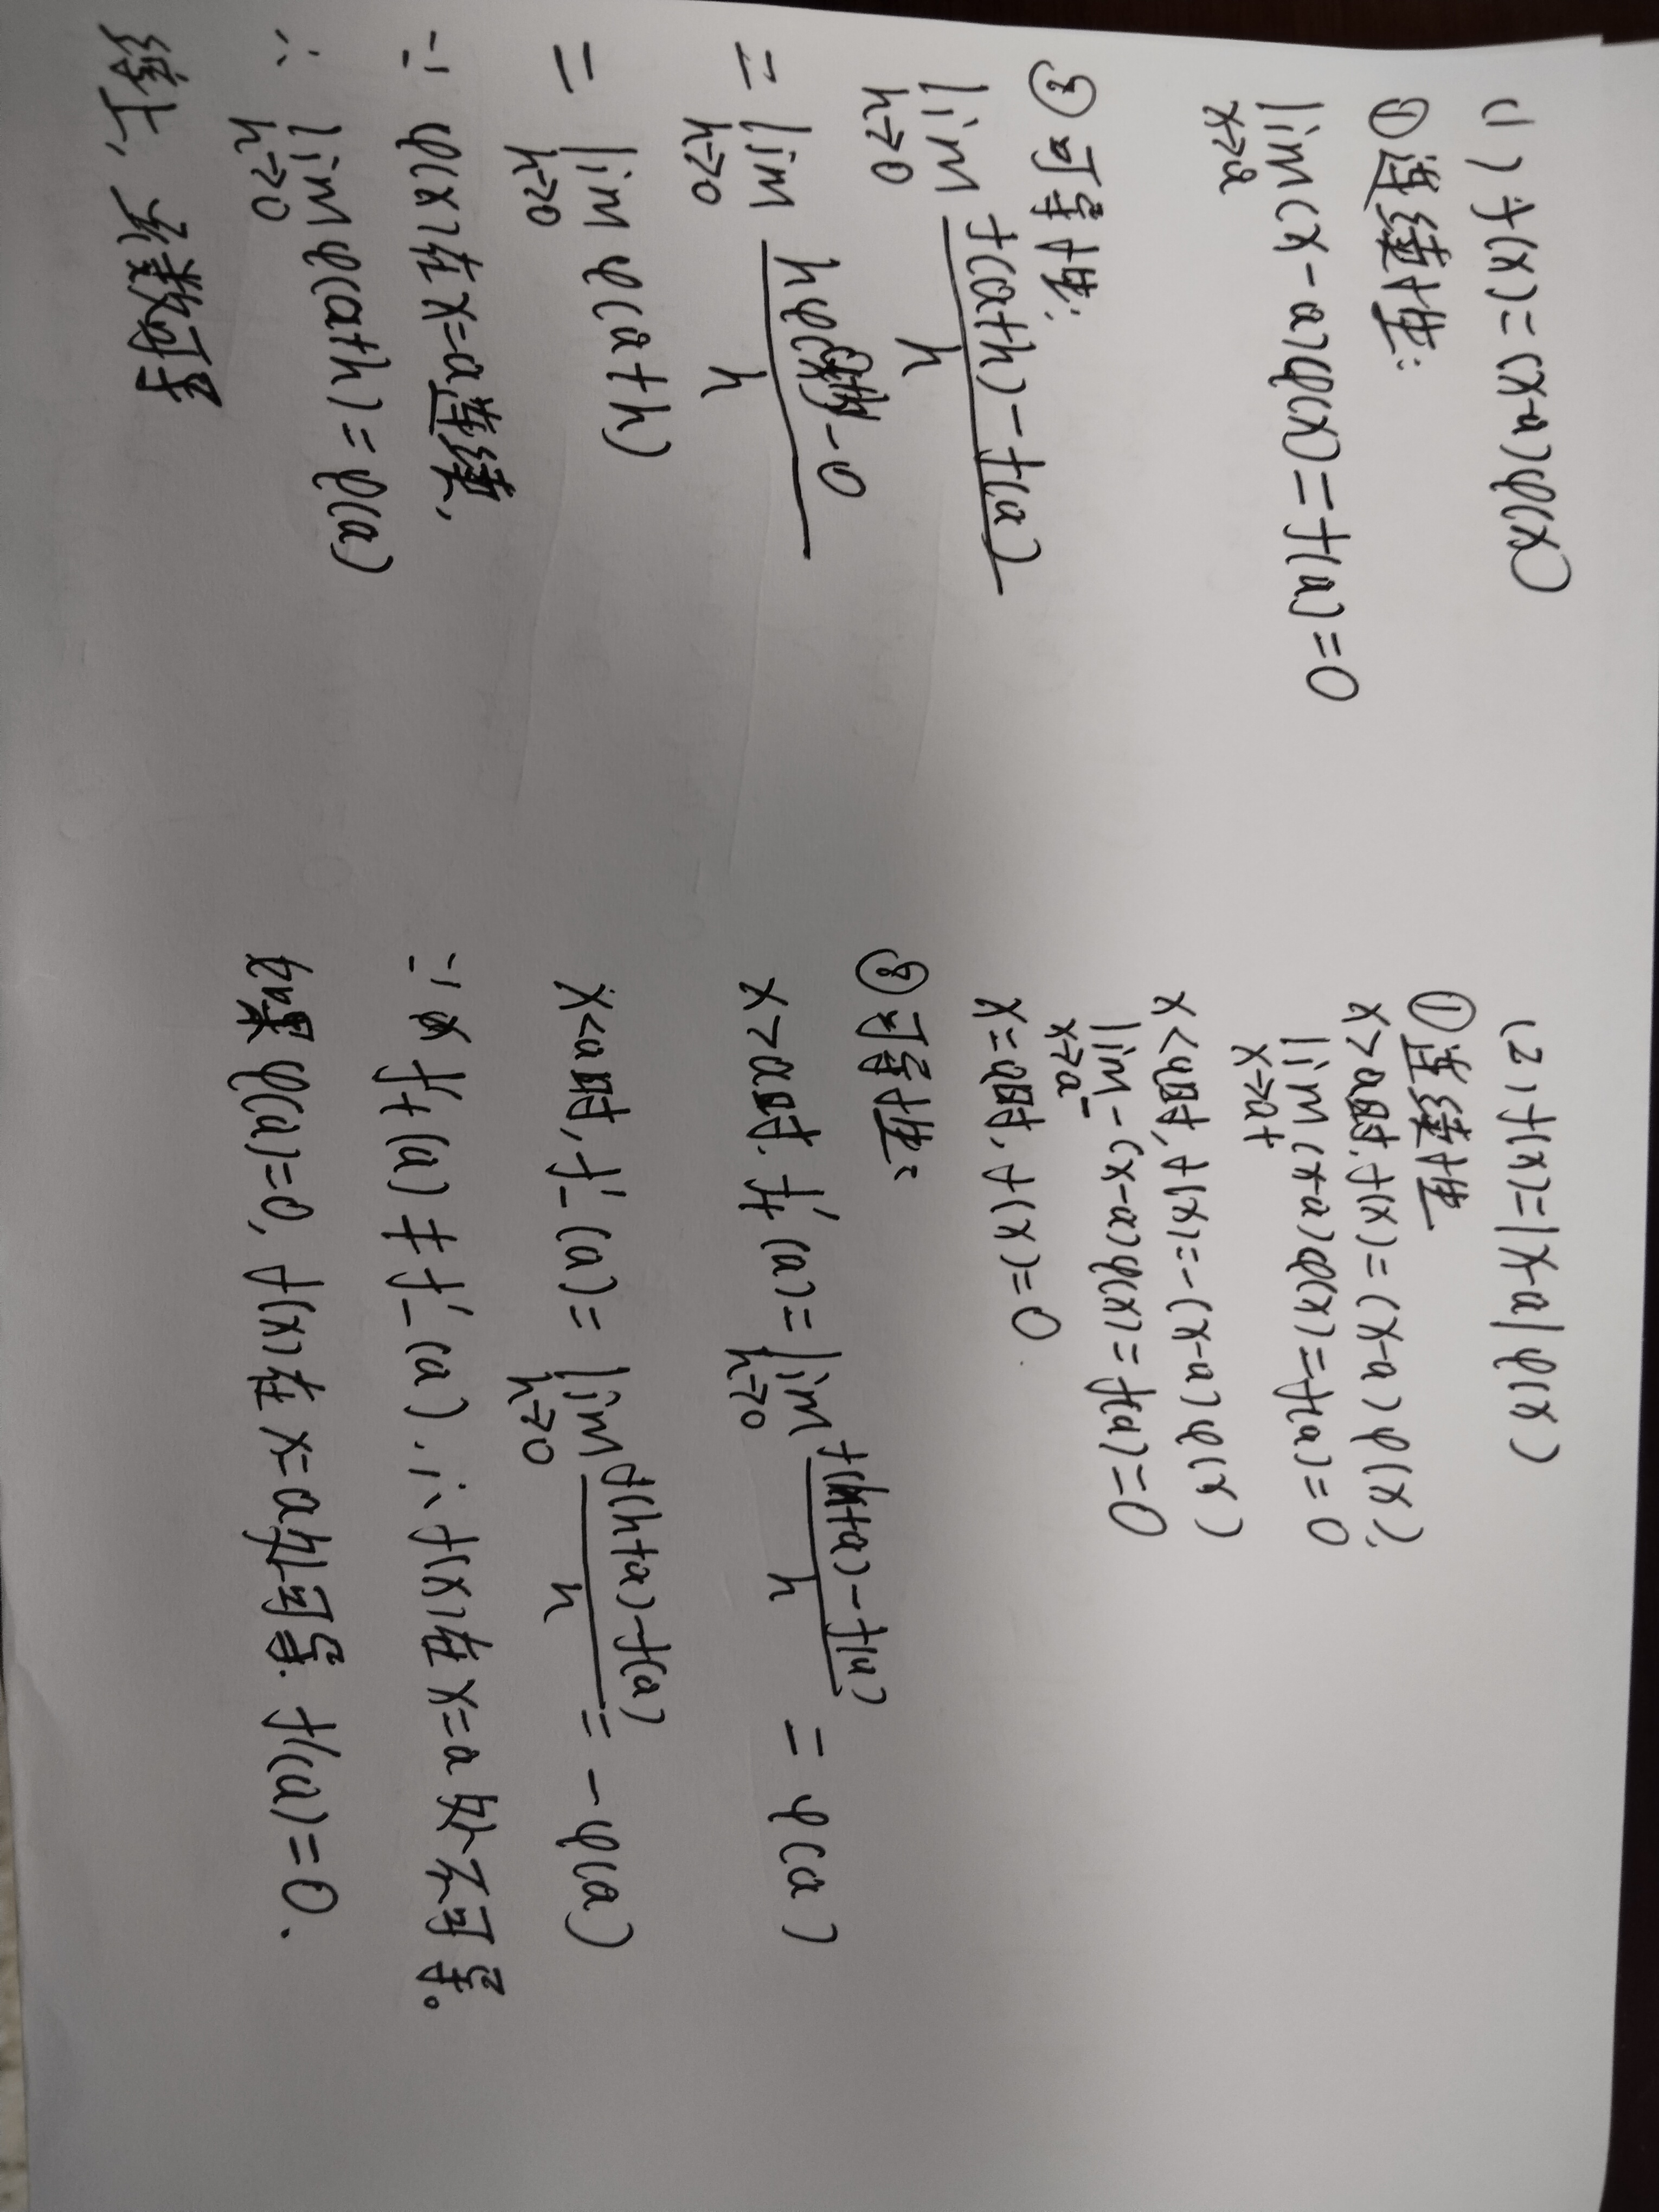 (1) f(x)=(x-a)φ(x)
①连续性:
lim(x-a)φ(x)=f(a)=0
x→a
②可导性:
lim f(a+h)-f(a)
h→0 h
= lim hφ(a+h)-0
h→0 h
= lim φ(a+h)
h→0
∵ φ(x)在x=a连续,
∴ lim φ(a+h)=φ(a)
h→0
综上,函数可导
(2) f(x)=|x-a|φ(x)
①连续性
x>a时,f(x)=(x-a)φ(x);
lim(x-a)φ(x)=f(a)=0
x→a+
x<a时,f(x)=-(x-a)φ(x)
lim -(x-a)φ(x)=f(a)=0
x→a-
x=a时,f(x)=0
②可导性:
x>a时,f'+(a)=lim f(h+a)-f(a) = φ(a)
h→0 h
x<a时,f'-(a)=lim f(h+a)-f(a) = -φ(a)
h→0 h
∵ f'+(a)≠f'-(a).∴f(x)在x=a处不可导。
如果φ(a)=0,f(x)在x=a处可导.f'(a)=0.